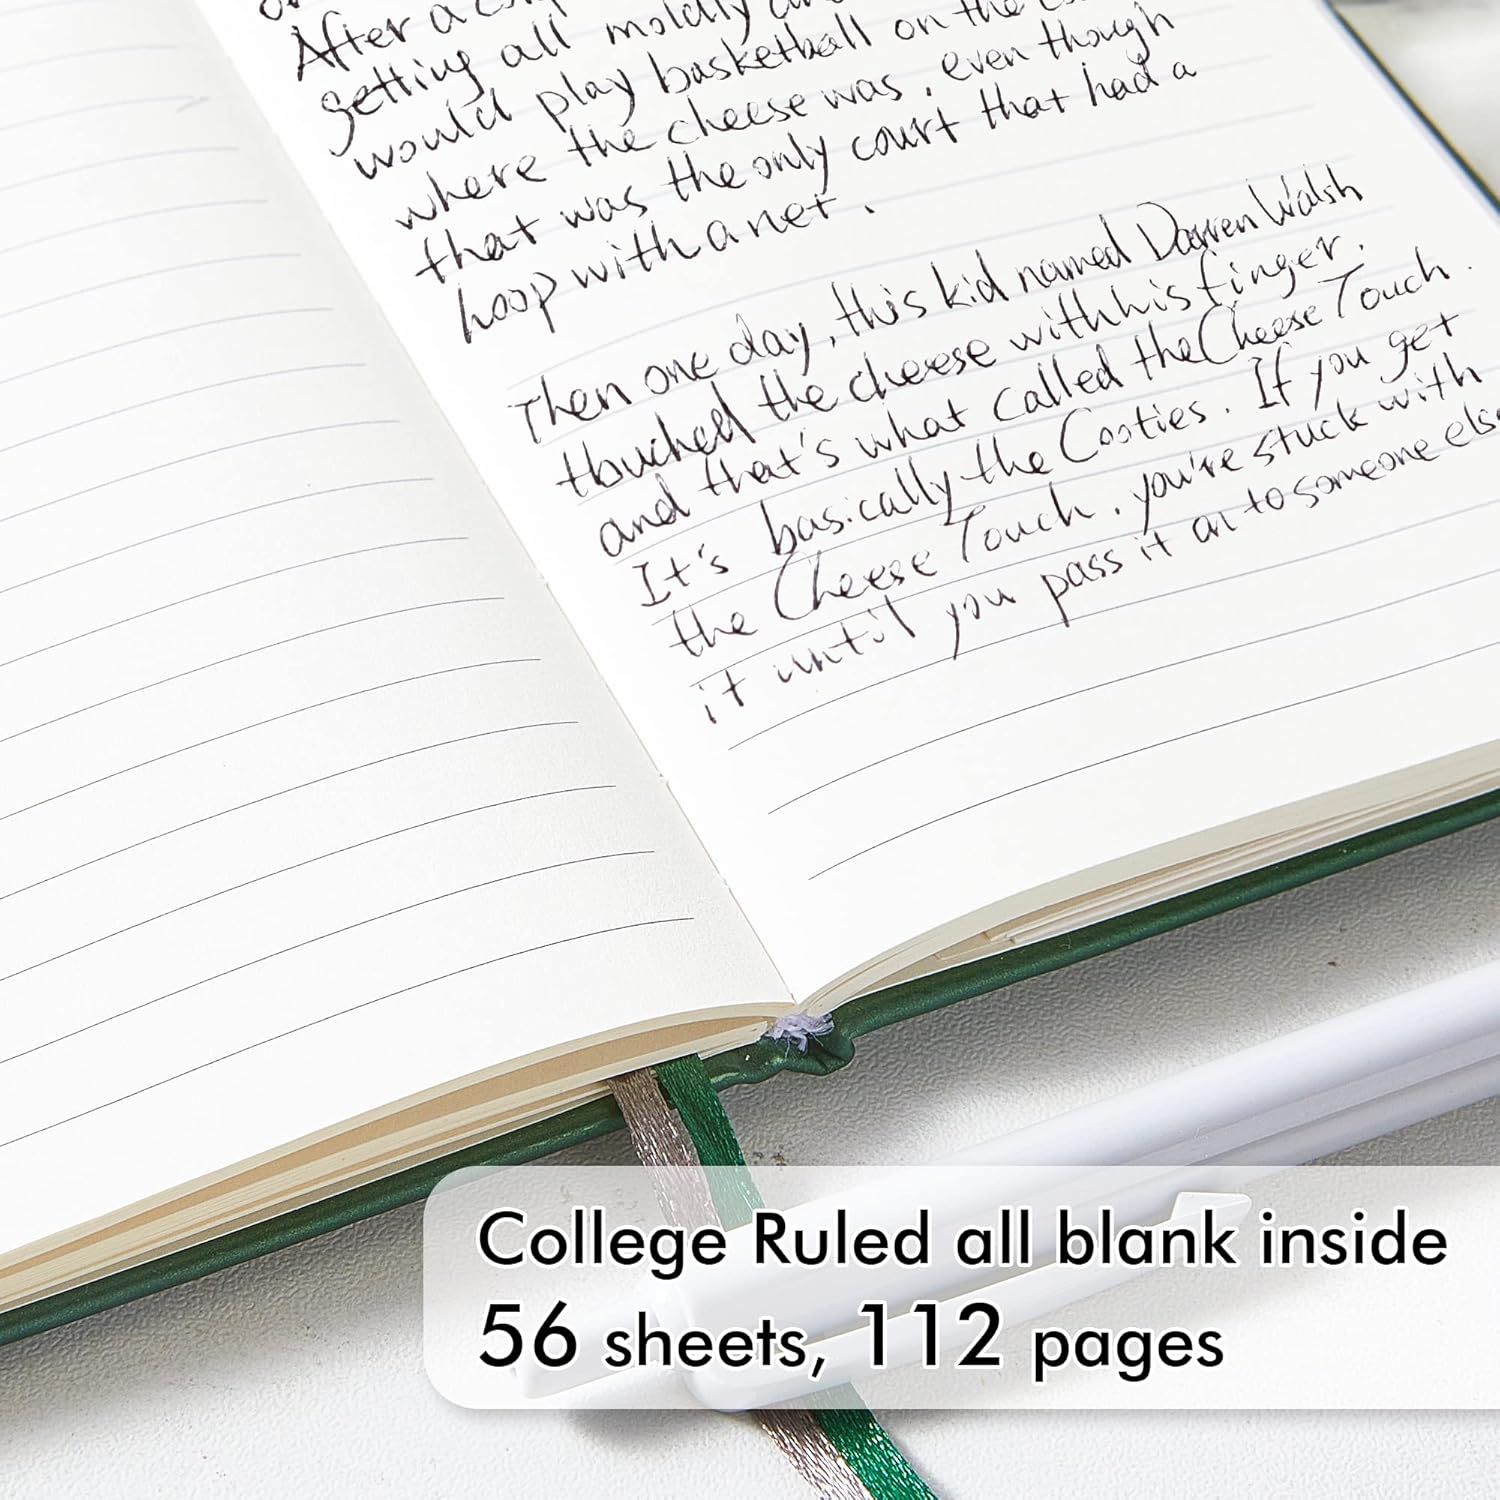 After a
getting all moldly
would play basketball on the
where the cheese was, even though
that was the only court that had a
hoop with a net.
Then one day, this kid named Darren Walsh
touched the cheese with his finger.
and that's what called the Cheese Touch.
It's basically the Cooties. If you get
the Cheese Touch, you're stuck with
it until you pass it on to someone else
College Ruled all blank inside
56 sheets, 112 pages